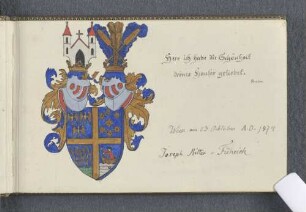 Herr ich habe die Schönheit
deines Hauses geliebt.
Wien am 27 Oktober A.D. 1879
Joseph Ritter v. Führich